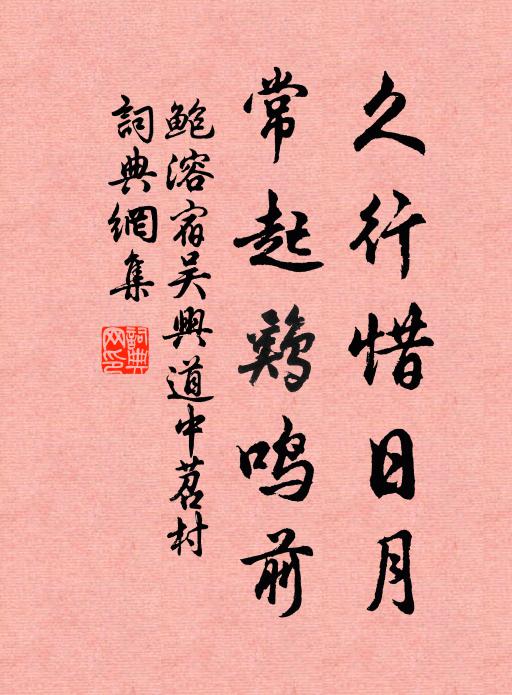 久行惜日月
常起鷄鳴前
鮑溶宿吴興道中苕村
詞典網集
詞典网印